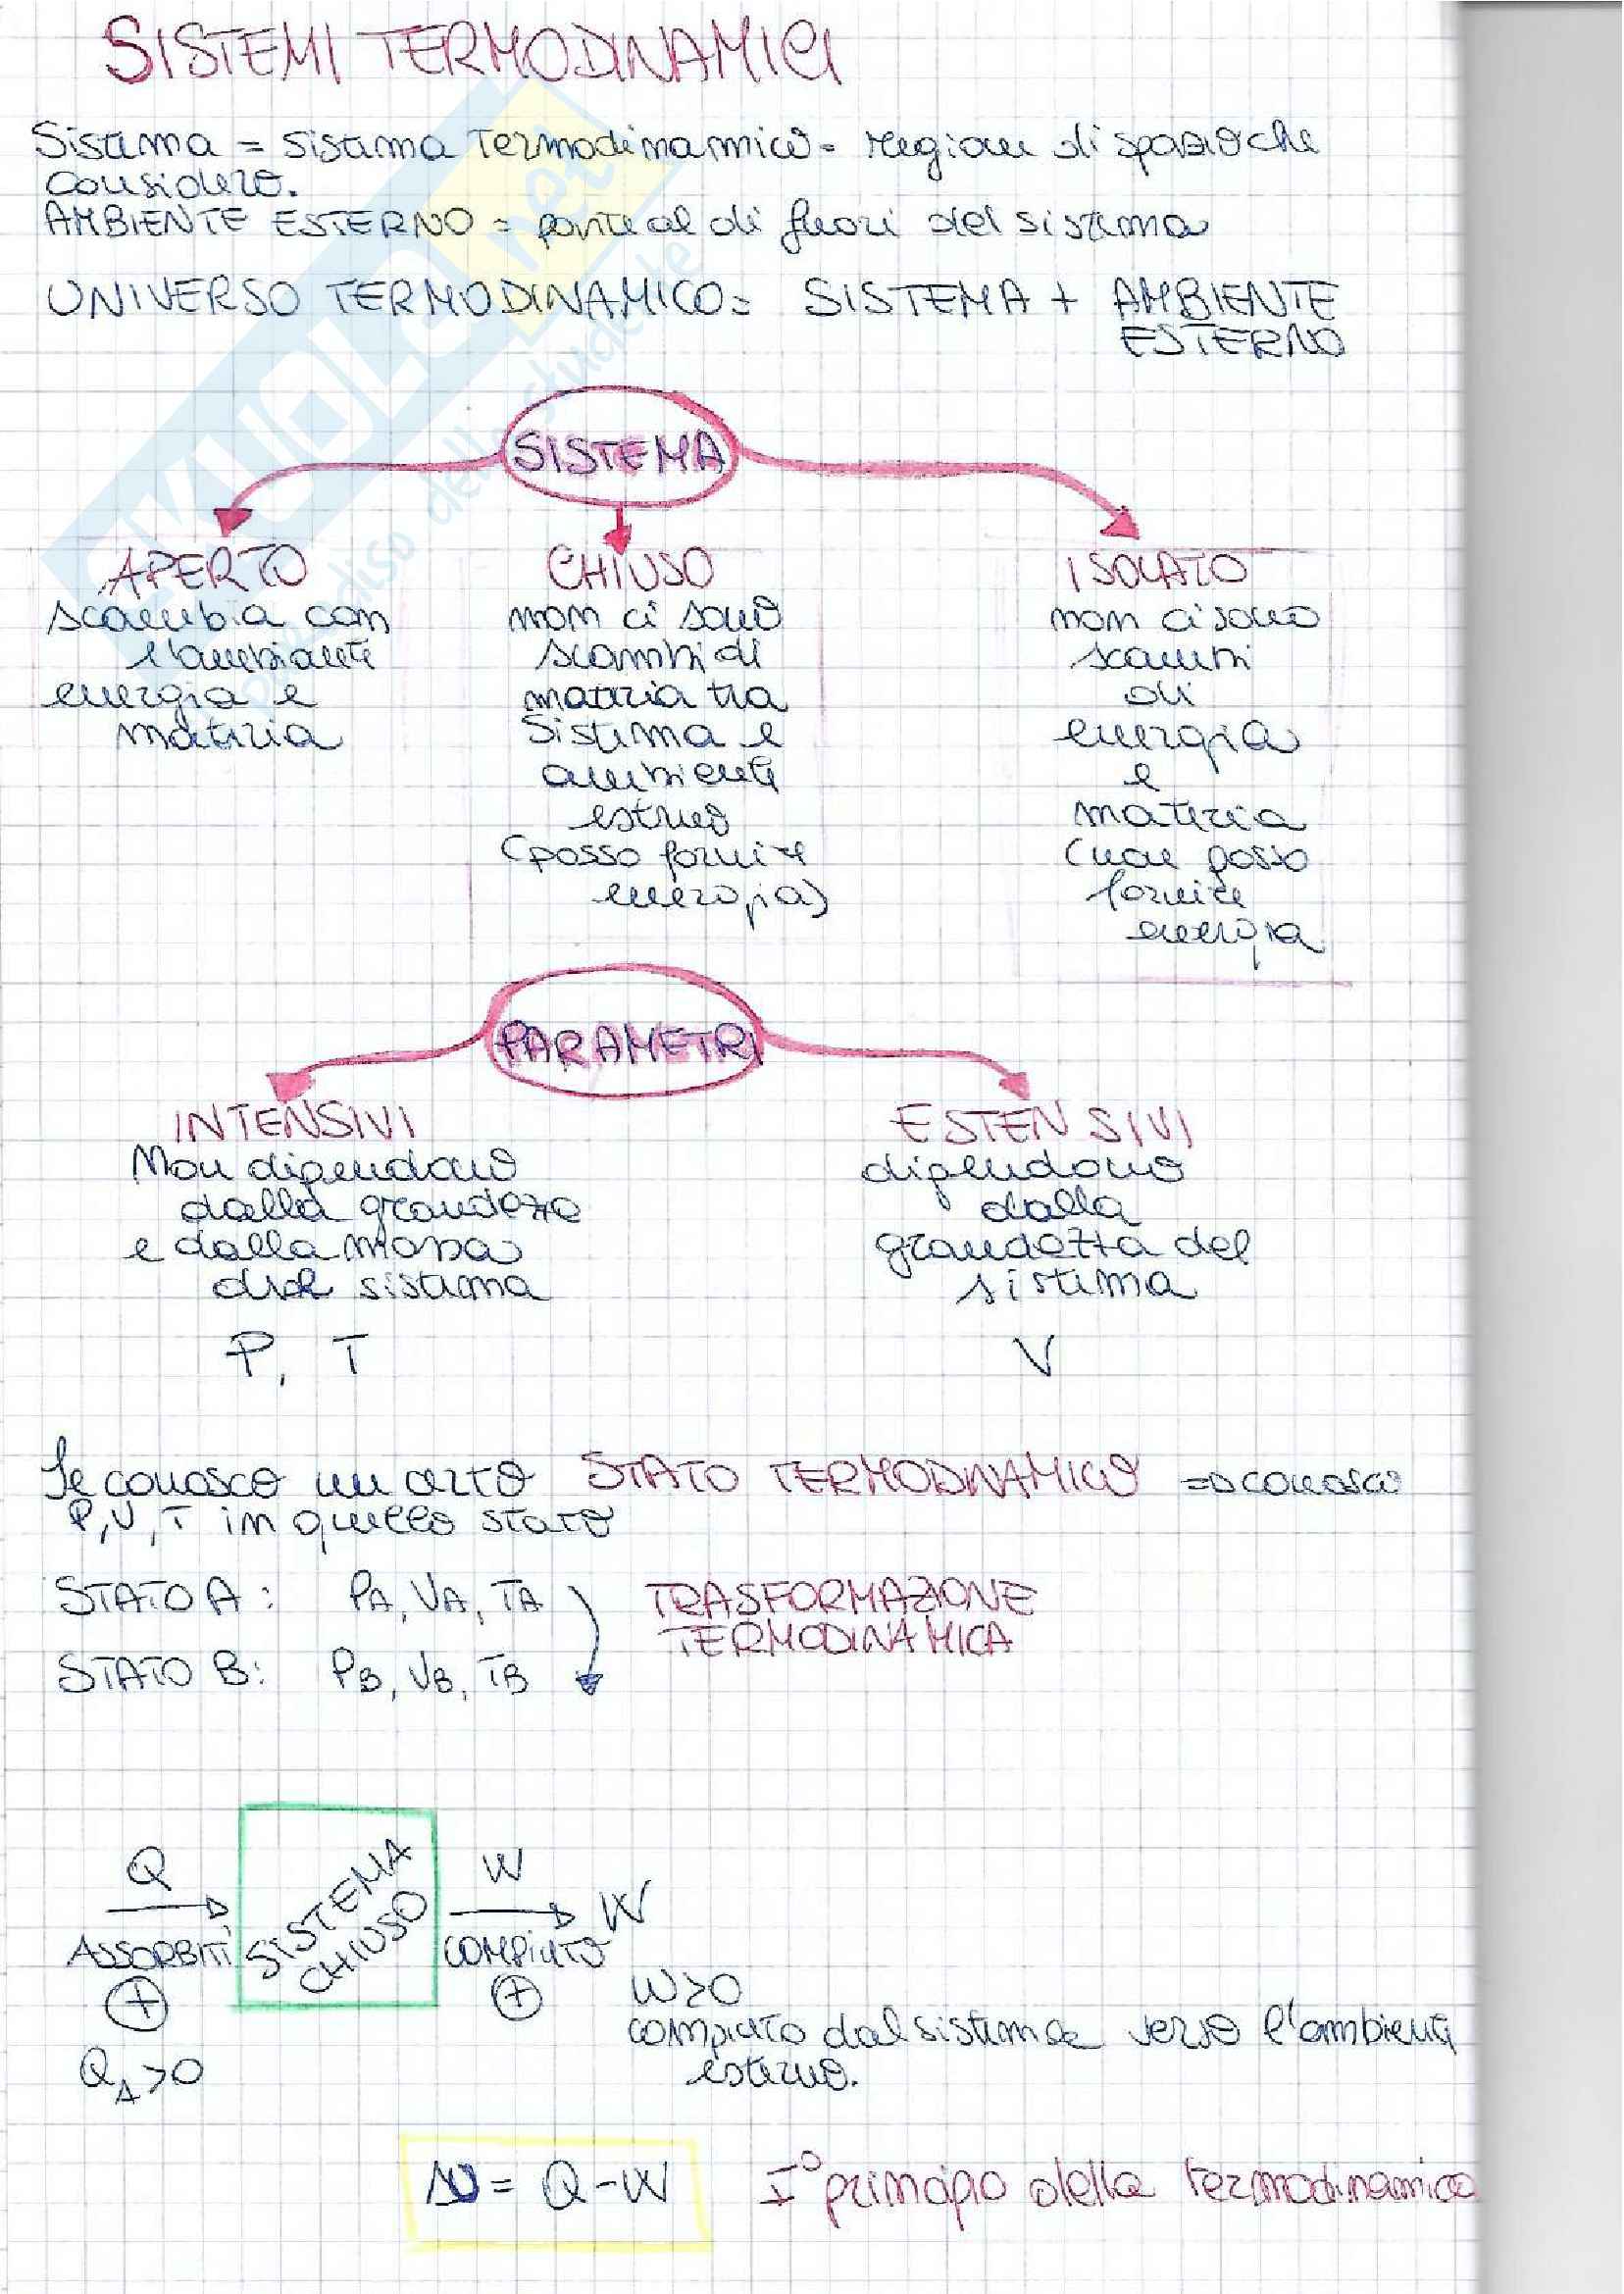 SISTEMI TERMODINAMICI
Sistema = Sistema Termodinamico = regione di spazio che
considero.
AMBIENTE ESTERNO = parte al di fuori del sistema
UNIVERSO TERMODINAMICO = SISTEMA + AMBIENTE
ESTERNO
SISTEMA
APERTO
scambia con
l'ambiente
energia e
materia
CHIUSO
non ci sono
scambi di
materia tra
Sistema e
ambiente
esterno
(posso fornire
energia)
ISOLATO
non ci sono
scambi
di
energia
e
materia
(non posso
fornire
energia
PARAMETRI
INTENSIVI
Non dipendono
dalla grandezza
e dalla massa
del sistema
P, T
ESTENSIVI
dipendono
dalla
grandezza del
sistema
V
Se conosco un certo STATO TERMODINAMICO => conosco
P, V, T in quello stato
STATO A: PA, VA, TA
TRASFORMAZIONE
TERMODINAMICA
STATO B: PB, VB, TB
Q
ASSORBITI
+
QA>0
SISTEMA
CHIUSO
W
COMPIUTO
+
W
W>0
compiuto dal sistema verso l'ambiente
esterno.
ΔU = Q - W
I° principio della termodinamica
SKUOLA.net
paradiso dello studente